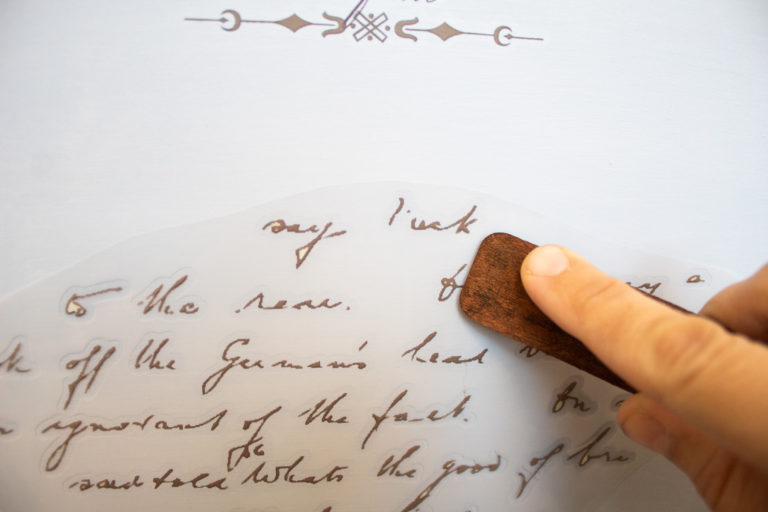 say
to the rear. a
off the German's head
ignorant of the fact.
and told Whats the good of